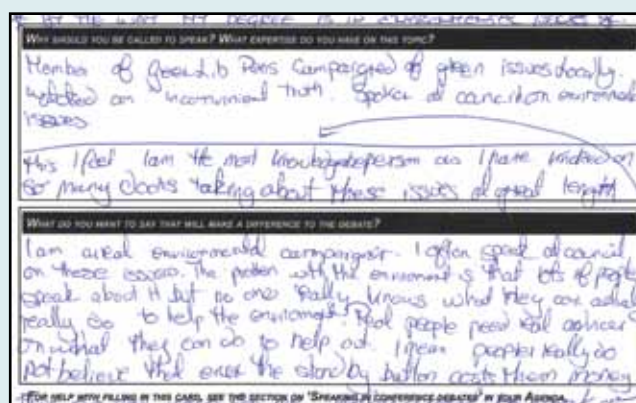 MY DEGREE IS IN
WHY SHOULD YOU BE CALLED TO SPEAK? WHAT EXPERTISE DO YOU HAVE ON THIS TOPIC?
Member of Green Lib Dems Campaigned of green issues locally.
an inconvinient truth. Spoken at council on
issues
this I feel I am the most person as I have knocked on
so many doors talking about these issues at great length
WHAT DO YOU WANT TO SAY THAT WILL MAKE A DIFFERENCE TO THE DEBATE?
I am a environmental I often speak at council
on these issues. The with the is that lots of people
speak about it but no one really knows what they can
really do to help the Real people need real
on what they can do to help out. I mean people really do
not believe that even the standby button costs them money
FOR HELP WITH FILLING IN THIS CARD, SEE THE SECTION ON 'SPEAKING IN CONFERENCE DEBATES' IN YOUR AGENDA.